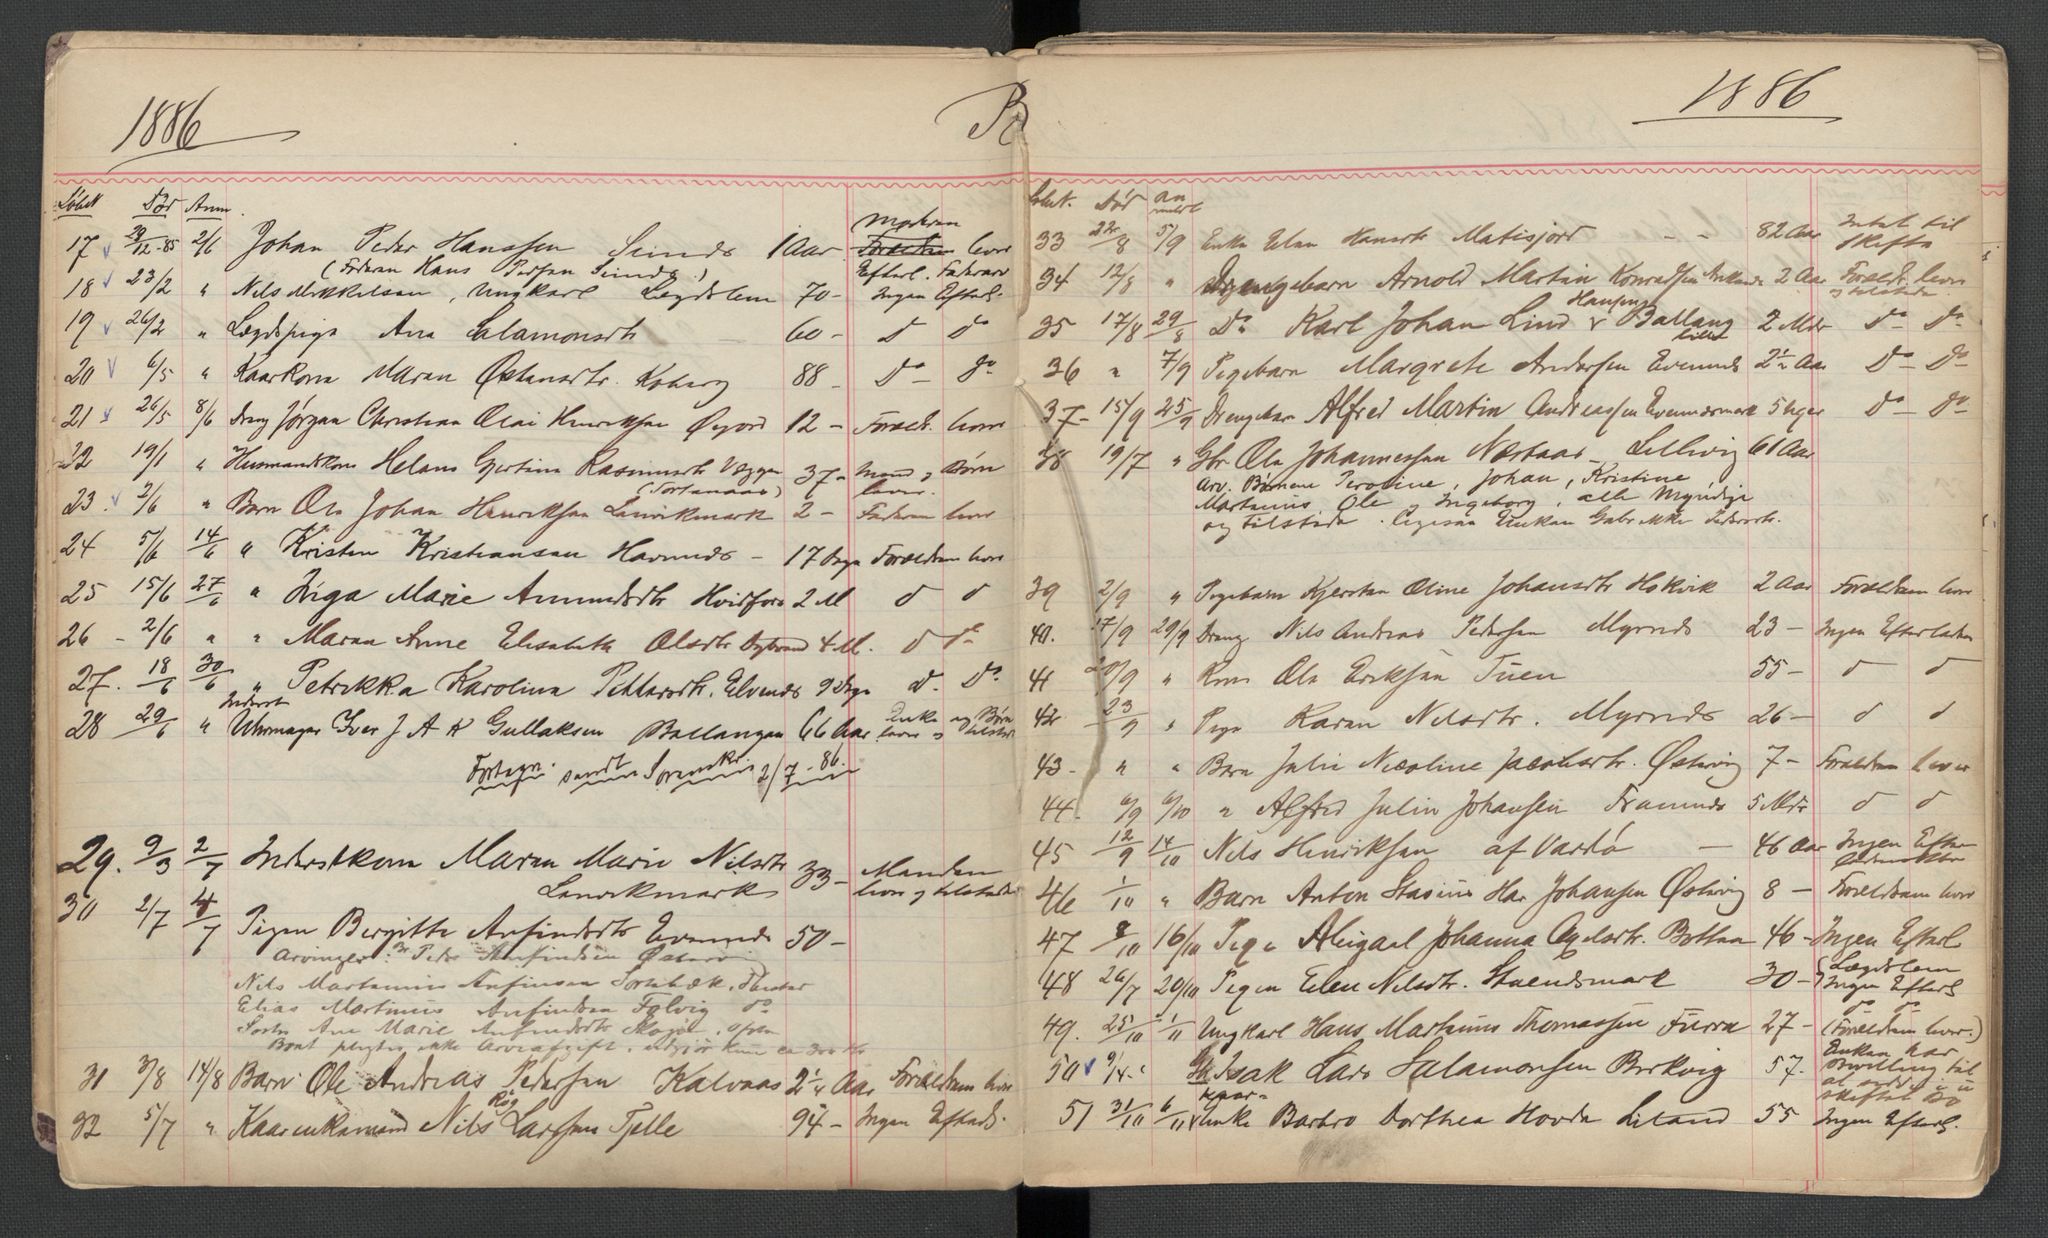 1886
Løb N Død Anm.
17 29/12-85 2/6 Johan Peder Hanssen 1 Aar Moderen Forældren lever
(Faderen Hans Pedersen ) Efterl. Faderarv
18 23/2 " Nils Mikkelsen, Ungkarl Lægdslem 70 - Ingen Efterl.
19 26/2 " Lægdspige Ana Salamonsdtr 60 - d do
20 6/5 " Kaarkone Maren Østensdtr. Koberg 88 - Do - do
21 26/5 8/6 Dreng Jørgen Christian Olai Henriksen Øijord 12 - Foreldr. lever
22 19/1 " Husmandskone Helene Gjertine Rasmusdtr Væggen 37 - Mand og Børn
(Sortanaas) lever.
23. 2/6 " Barn Ole Johan Henriksen Lanvikmark 2 - Faderen lever
24 5/6 14/6 " Kristen Kristiansen Havnnes - 17 Dage Forældren lever
25 15/6 27/6 " Inga Marie Amundsdtr Hvidfors 2 M d d
26 - 2/6 " " Maren Anne Elisabeth Olsdtr 4 M. d do
27. 18/6 30/6 " Petrikka Karolina Pettersdtr. Elvenes 9 Dage d. Do
Inderst
28 29/6 " Uhrmager Iver J A K Gullaksen Ballangen 66 Aar Enke og Børn
lever og tilstede
Fortegn. sendt Sorenskr. 2/7-86.
29. 9/3 2/7 Inderstkone Maren Marie Nilsdtr 33 - Manden
Lanvikmark lever og tilstede
30 2/7 4/7 Pigen Bergitte Anfindsdtr Evenes 50 -
Arvinger: Br Peder Anfindsen Østervig
Nils Martinus Anfinsen Sortebæk,
Elias Martinus Anfindsen Folvig do
Søster Ane Marie Anfindsdtr
Boet pligtig ikke Arveafgift, udgjør kun ca 300 Kr
31 3/8 14/8 Barn Ole Andreas Pedersen Kalvaas 2½ Aar Forældren lever
32 5/7 " Kaarenkemand Nils Larssen Tjelle 94 - Ingen Efterl.
B
1886
Løb N. Død Anmeldt
33 24/8 5/9 Enke Elen Hansdtr Matisjord - - 82 Aar Intet til
skifte
34 12/8 " Drengebarn Arnold Martin Konradsen 2 Aar Foreldr. lever
og tilstede
35 17/8 29/8 Do Karl Johan Lind Hansen Ballang 2 Mdr Do Do
36 " 7/9 Pigebarn Margrete Andersen Evenes 2½ Aar Do - Do
37 - 15/9 25/9 Drengebarn Alfred Martin Andreassen Evenesmark 5 Uger Do - Do
38 19/7 " Gbr Ole Johannessen Næstaas Lillevig 61 Aar
Arv. Børnene Peroline, Johan, Kristine
Martinus Ole og Ingeborg, alle Myndige
og tilstede. Ligesaa Enken Gabr ikke Pedersdtr.
39 2/9 " Pigebarn Kjersten Oline Johansdtr Hokvik 2 Aar Forældren lever
40. 17/9 29/9 Dreng Nils Andreas Pedersen Myrnes 23 - Ingen Efterladen
41 20/9 " Kone Ole Eriksen Tuen 55 - d d
42 23/9 " Pige Karen Nilsdtr. Myrnes 26 - d d
43 - " " Barn Julie Nicoline Jacobsdtr. Østervig 7 - Forældren lever
44. 6/9 6/10 " Alfred Julin Johansen Framnes 5 Mdr d d
45 12/9 14/10 Nils Henriksen af Vardø - 46 Aar Ingen Efter-
46 1/10 " Barn Anton Stasius Har Johansen Østervig 8 - Forældren lever
47 8/10 16/10 Pige Abigael Johanna Axelsdtr. Botten 46 - Ingen Efterl
48 26/7 20/10 Pigen Elen Nilsdtr. Stuendsmark 30 - Lægdslem
Ingen Efterl
49. 25/10 1/11 Ungkarl Hans Martinus Thomassen Furra 27 - do do
(Forældren lever.)
50 9/4 Gbr Isak Lars Salamonsen Berkvig 57 - Enken har
Bevilling til
at sidde i u-
skiftet Bo
51 31/10 6/11 Kaar-
enke Barbro Dorthea Hovda Liland 55 Ingen Efterl.